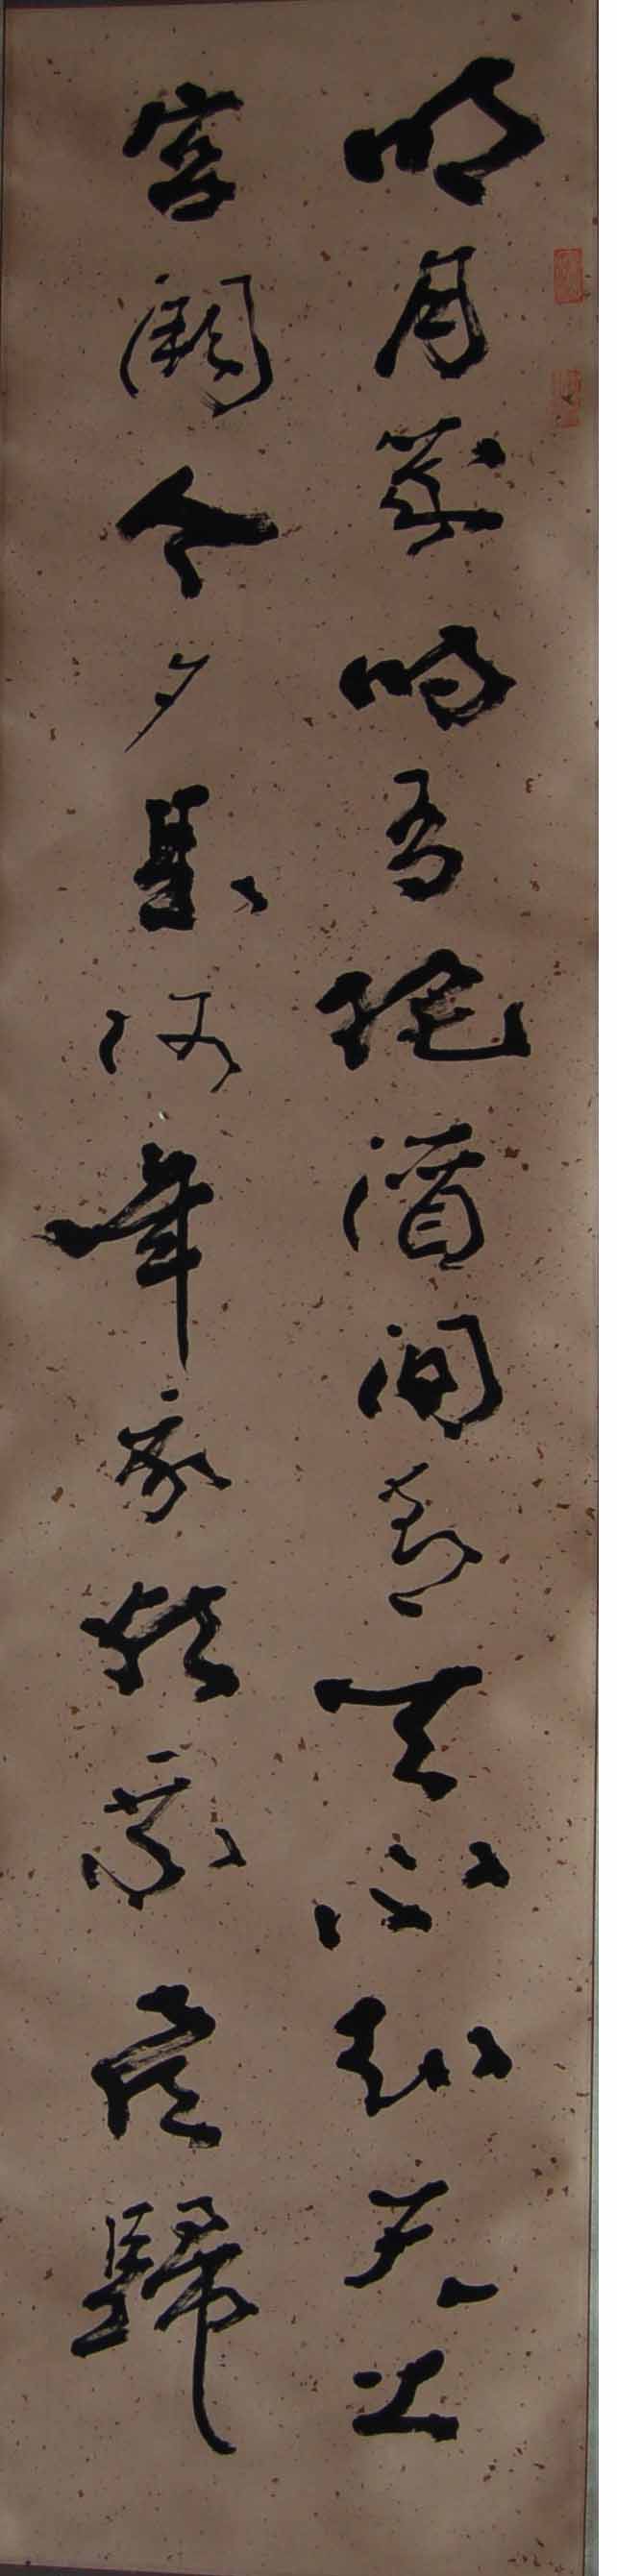 明月幾時有把酒問青天不知天上
宮闕今夕是何年我欲乘風歸